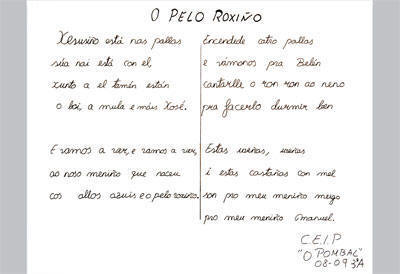 O PELO ROXIÑO
Xesusiño está nas pallas
súa nai está con el,
xunto a el tamén están
o boi, a mula e máis Xosé.
E vamos a ver, e vamos a ver,
ao noso meniño que naceu
cos ollos azuis e o pelo roxiño.
Encendede catro pallas
e vámonos pra Belén
cantarlle o ron ron ao neno
pra facerlo durmir ben
Estas uveñas, uveñas
i estas castañas con mel
son pro meu meniño meigo
pro meu meniño Emanuel.
C.E.I.P
"O POMBAL"
08-09 3ºA